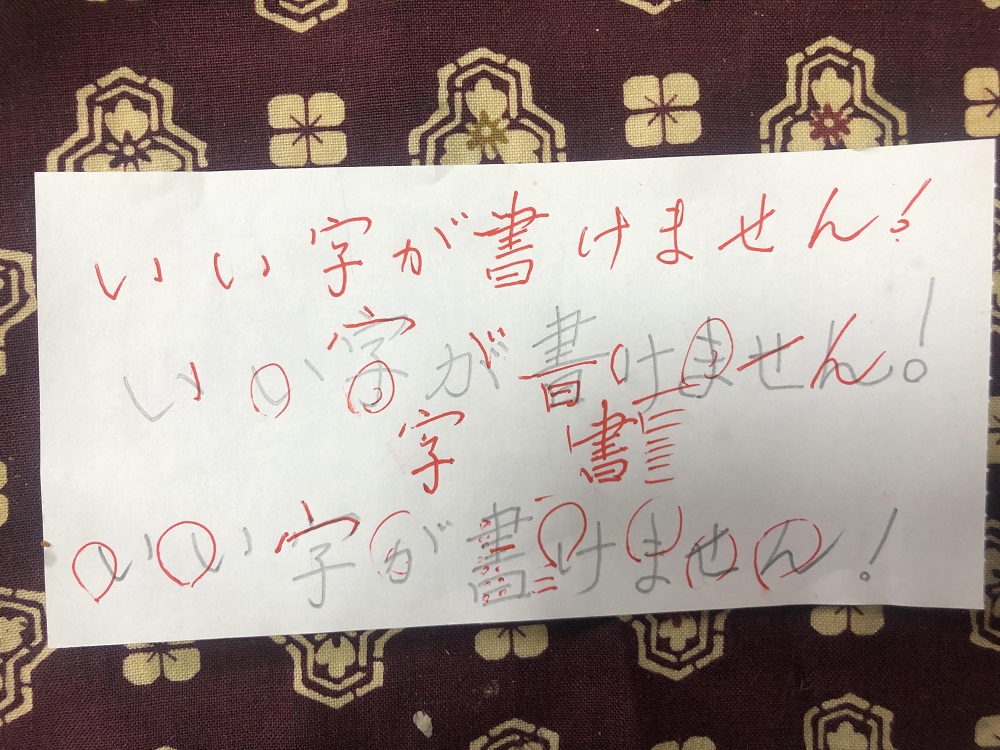 いい字が書けません!
いい字が書けません!
字 書
いい字が書けません!